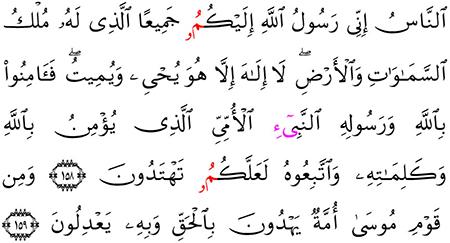 اَ۬لنَّاسُ إِنِّى رَسُولُ اُ۬للَّهِ إِلَيْكُمُۥ جَمِيعًا اَ۬لَّذِى لَهُۥ مُلْكُ
اُ۬لسَّمَٰوَٰتِ وَالْأَرْضِۖ لَا إِلَٰهَ إِلَّا هُوَ يُحْىِۦ وَيُمِيتُۖ فَـَٔامِنُواْ
بِاللَّهِ وَرَسُولِهِ اِ۬لنَّبِىٓءِ اِ۬لْأُمِّىِّ اِ۬لَّذِى يُؤْمِنُ بِاللَّهِ
وَكَلِمَٰتِهِۦ وَاتَّبِعُوهُ لَعَلَّكُمُۥ تَهْتَدُونَ ١٥٨ وَمِن
قَوْمِ مُوسَىٰ أُمَّةٌ يَهْدُونَ بِالْحَقِّ وَبِهِۦ يَعْدِلُونَ ١٥٩